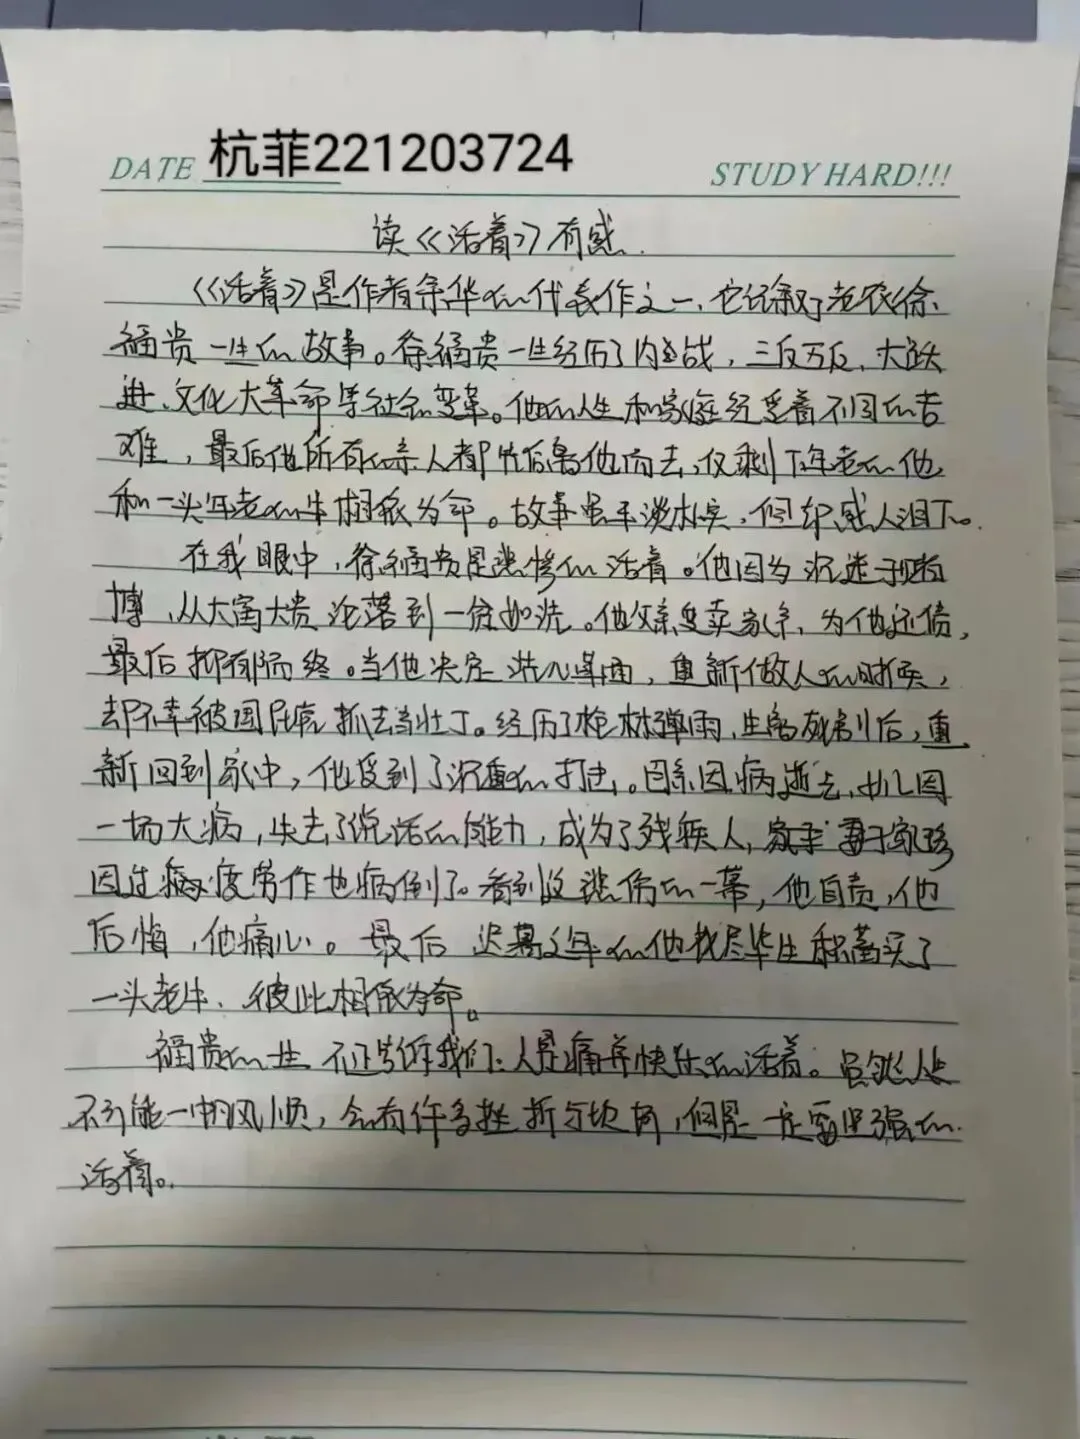 杭菲221203724
DATE
STUDY HARD!!!
读《活着》有感.
《活着》是作者余华的代表作之一、它记叙了老农徐
福贵一生的故事。徐福贵一生经历了内战，三反五反，大跃
进、文化大革命等社会变革。他的人生和家庭经受着不同的苦
难，最后他所有的亲人都先后离他而去，仅剩下年老的他
和一头年老的牛相依为命。故事虽平淡朴实，但却感人泪下。
在我眼中，徐福贵是悲惨的活着。他因为沉迷于赌
博，从大富大贵沦落到一贫如洗。他父亲变卖家产，为他还债，
最后抑郁而终。当他决定洗心革面，重新做人的时候，
却不幸被国民党抓去当壮丁。经历了枪林弹雨，生离死别后，重
新回到家中，他受到了沉重的打击。母亲因病逝去，女儿因
一场大病，失去了说话的能力，成为了残疾人，妻子家珍
因过度劳作也病倒了。看到这悲伤的一幕，他自责，他
后悔，他痛心。最后迟暮之年的他找尽毕生积蓄买了
一头老牛、彼此相依为命。
福贵的一生不止告诉我们：人是痛并快乐的活着。虽然人生
不可能一帆风顺，会有许多挫折与坎坷，但是一定要坚强的
活着。